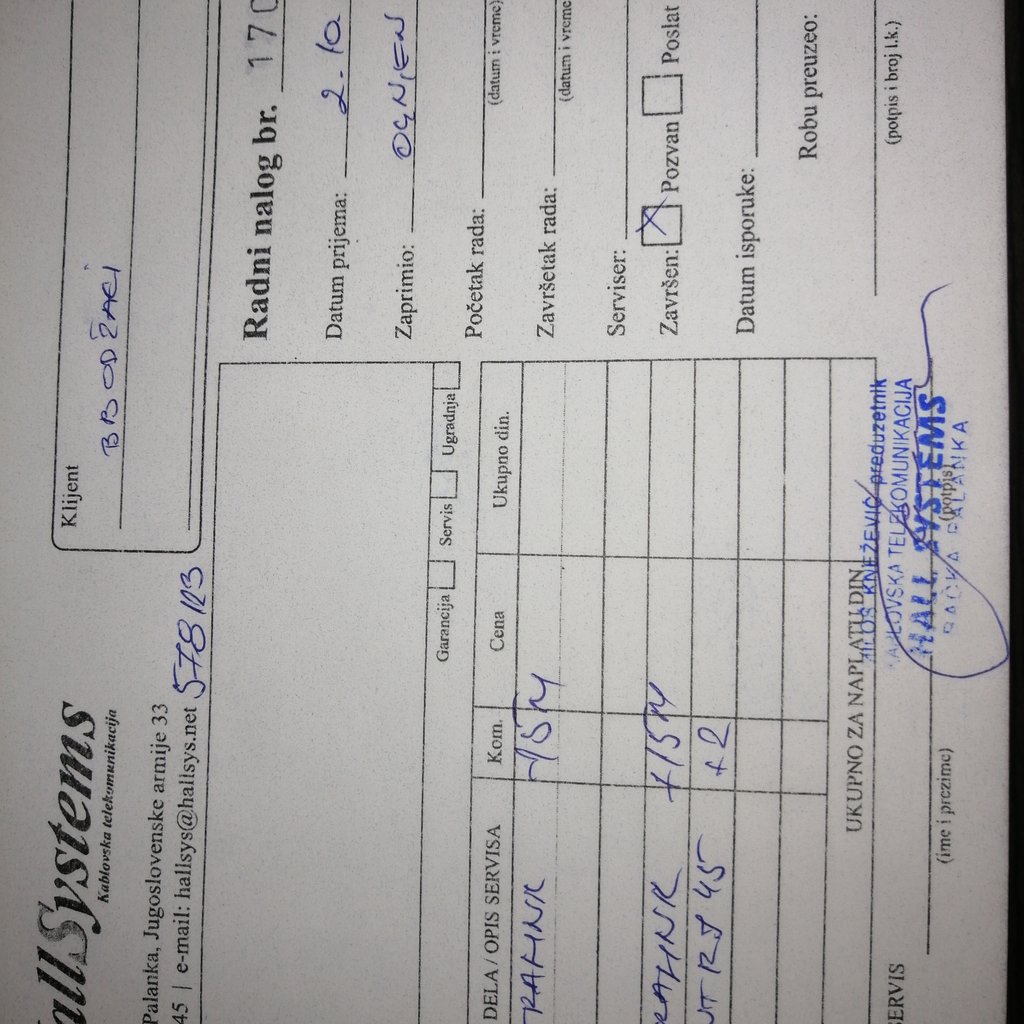 allSystems
Kablovska telekomunikacija
Palanka, Jugoslovenske armije 33
45 | e-mail: hallsys@hallsys.net
578123
Klijent
BB ODŽACI
Radni nalog br. 170
Datum prijema: 2.10
Zaprimio: OGNJEN
Početak rada:
(datum i vreme)
Završetak rada:
(datum i vreme
Serviser:
Završen: X Pozvan Poslat
Datum isporuke:
Robu preuzeo:
(potpis i broj l.k.)
Garancija Servis Ugradnja
DELA / OPIS SERVISA Kom. Cena Ukupno din.
-15M
+15M
RJ45 +2
UKUPNO ZA NAPLATU DIN
KNEŽEVIĆ preduzetnik
KABLOVSKA TELEKOMUNIKACIJA
HALL SYSTEMS
BAČKA PALANKA
(potpis)
(ime i prezime)
ERVIS